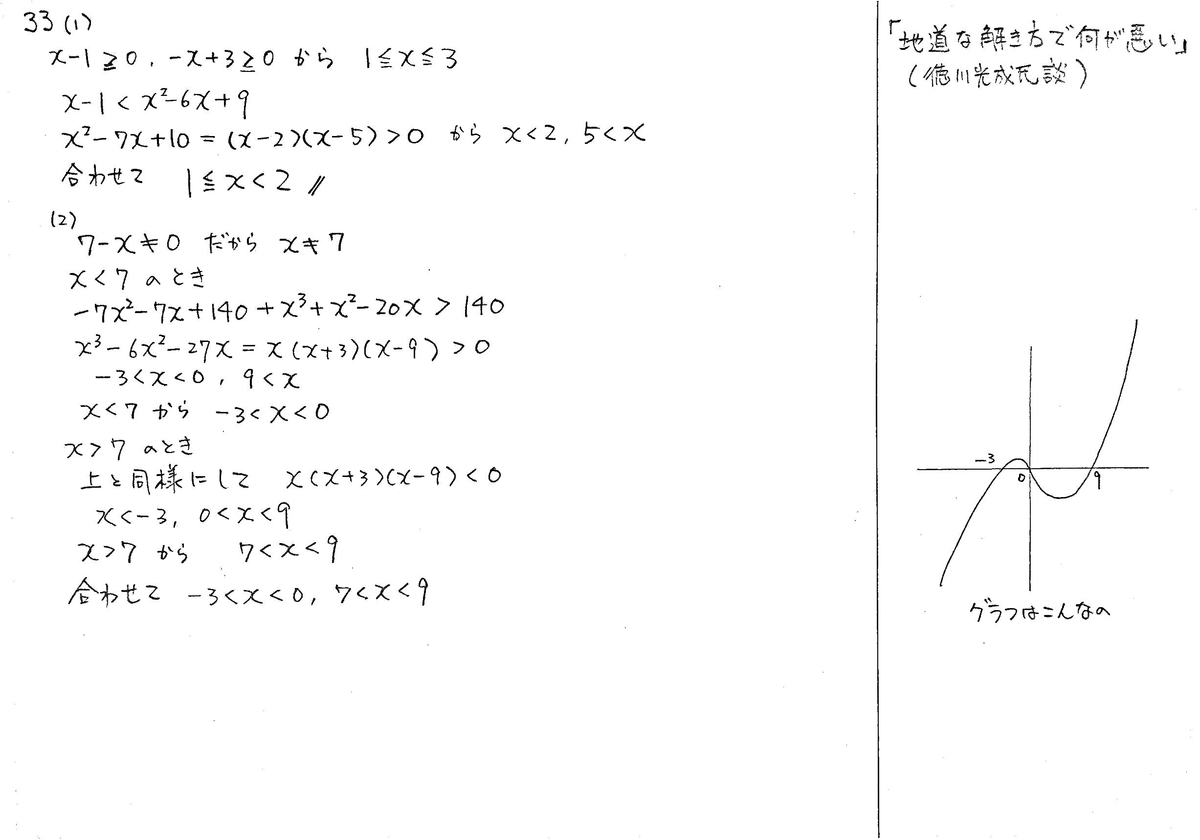 33 (1)
x-1≧0, -x+3≧0 から 1≦x≦3
x-1<x²-6x+9
x²-7x+10=(x-2)(x-5)>0 から x<2, 5<x
合わせて 1≦x<2 //
(2)
7-x≠0 だから x≠7
x<7 のとき
-7x²-7x+140+x³+x²-20x>140
x³-6x²-27x=x(x+3)(x-9)>0
-3<x<0, 9<x
x<7 から -3<x<0
x>7 のとき
上と同様にして x(x+3)(x-9)<0
x<-3, 0<x<9
x>7 から 7<x<9
合わせて -3<x<0, 7<x<9
「地道な解き方で何が悪い」
(徳川光成氏談)
-3
0
9
グラフはこんなの